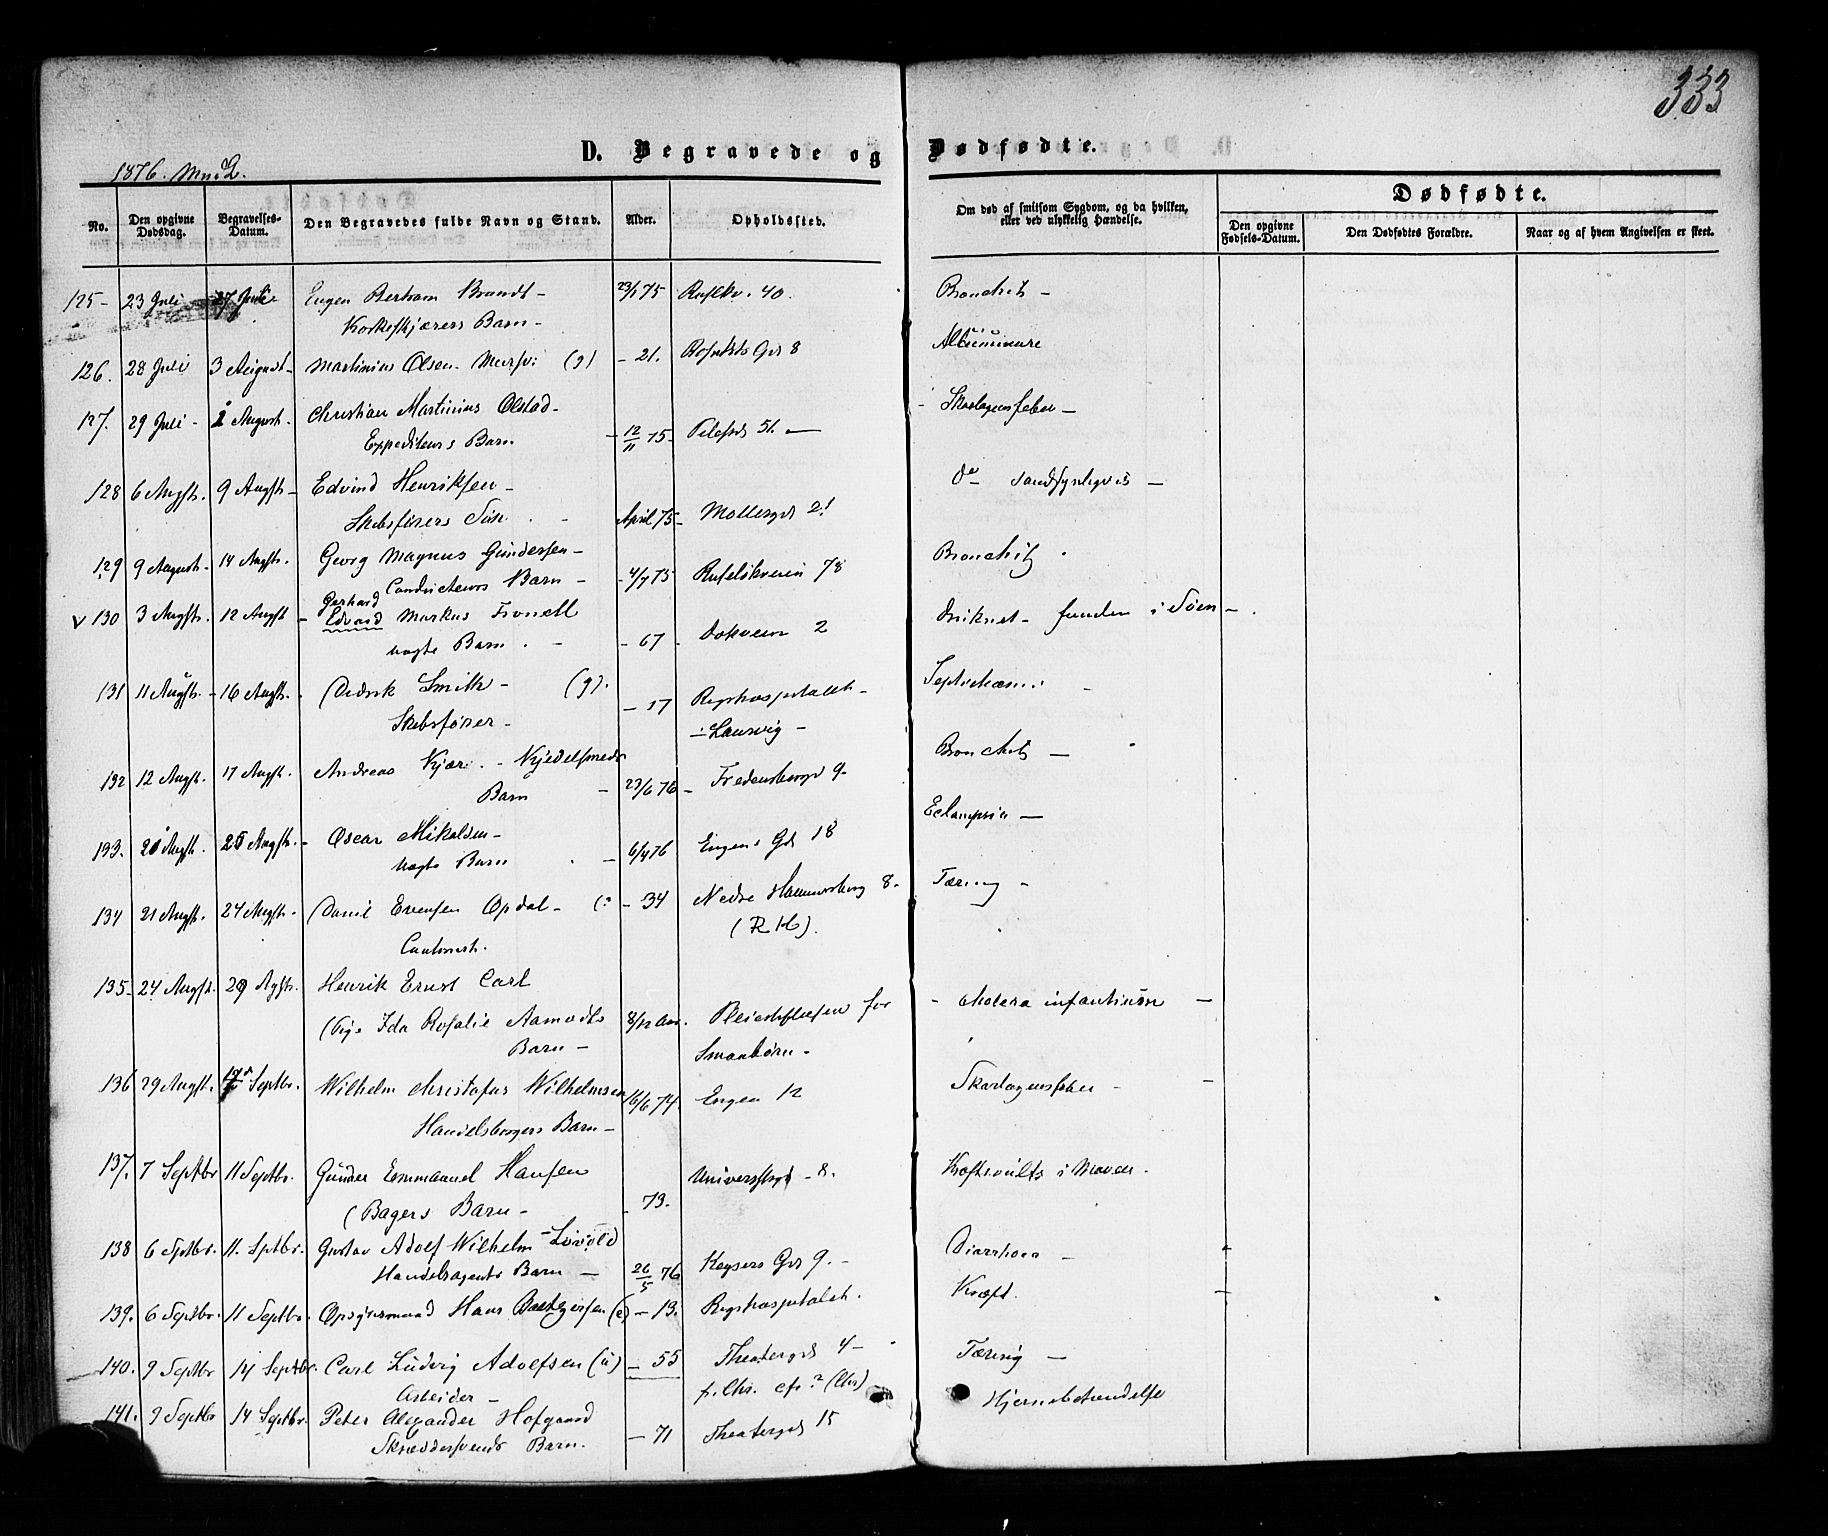 333
D. Begravede og Dødfødte.
1876. Mnd.
Dødfødte.
No. Den opgivne Dødsdag. Begravelses-Datum. Den Begravedes fulde Navn og Stand. Alder. Opholdssted. Om død af smitsom Sygdom, og da hvilken, eller ved ulykkelig Hændelse. Den opgivne Fødsels-Datum. Den Dødfødtes Forældre. Naar og af hvem Angivelsen er skeet.
125 - 23 Juli 27 Juli Eugen Bertram Brandt - 75 40. Bronchit -
Korkeskjærers Barn -
126. 28 Juli 3 August - Martinius Olsen. (g) - 21. Gd 8 Albuminure
127. 29 Juli - 2 August. Christian Martinius Olstad - - Skarlagensfeber -
Expediteurs Barn - 12/11 75 - Pilestd 51. -
128 6 Augst. 9 Augst - Edvind Henriksen - do - sandsynligvis -
Skibsførers Søn. - April 75 - Møllergd 21
129 9 August - 14 Augst. Georg Magnus Gundersen - Bronchit
Conducteurs Barn - - 4/7 75 78
Gerhard
v 130 3 Augst. 12 Augst - Edvard Markus - 67 - Dokveien 2 Druknet - funden i Søen -
Barn. -
131 11 Augst. - 16 Augst. Didrik Smith - (g). - 17 Rigshospitalet -
Skibsfører - i Laurvig -
132 12 Augst. 17 Augst. Andreas Kjær. - Kjedelsmeds Bronchit -
Barn - 23/6 76 - Fredensborgv 9 -
133. Augst. Augst. - Oscar Mikalsen - 6/4 76 Engens Gd 18 Eclampsia -
Barn -
134 21 Augst. 24 Augst. Daniel Evensen Opdal - - 34 Nedre Hammersborg 8 - Tæring -
(R H).
135 - 24 Augst. 29 Augst. Henrik Ernst Carl - Cholera infantium -
Pige Ida Rosalie Aamodts 8/12 Aar. Pleiestiftelsen for
Barn - Smaabørn -
136 29 Augst. Septbr. Wilhelm Christofer Wilhelmsen 16/6 74. Engen 12 Skarlagensfeber -
Handelsborgers Barn -
137. 7 Septbr 11 Septbr. Gunder Emmanuel Hansen Universitgd - 8. i Maven.
Bagers Barn - - 73.
138 6 Sptbr. 11. Sptbr. Gustav Adolf Wilhelm - Diarrhoea -
Handelsagents Barn - 26/5 76 Keysers Gd 9. -
139. 6 Septbr. 11 Septbr. Opsynsmand Hans (e) - 13. Rigshospitalet. Kræft.
140. 9 Septbr 14 Septbr. Carl Ludvig Adolfsen (u) - 55 Theatergd 4 - Tæring -
Arbeider -
141. 9 Septbr 14 Septbr. Peter Alexander Hofgaard - 71 Theatergd 15 Hjernebetændelse
Skræddersvends Barn.